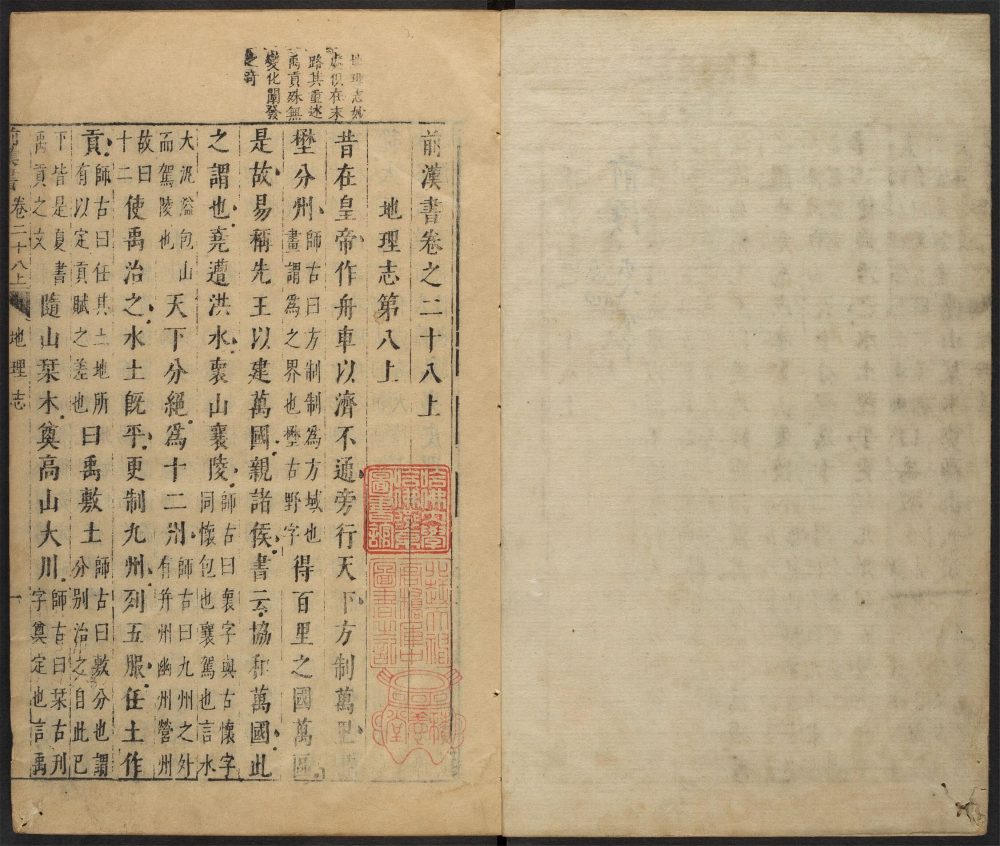 前漢書卷之二十八上
地理志第八上
昔在皇帝作舟車以濟不通旁行天下方制萬里
壄分州師古曰方制制為方域也畫謂為之界也壄古野字得百里之國萬區
是故易稱先王以建萬國親諸侯書云協和萬國此
之謂也堯遭洪水褱山襄陵師古曰褱字與古懷字同懷包也襄駕也言水
大泥溢包山而駕陵也天下分絕為十二州師古曰九州之外有并州幽州營州
故曰十二使禹治之水土旣平更制九州列五服任土作
貢師古曰任其土地所有以定貢賦之差也曰禹敷土師古曰敷分也謂分別治之自此已
下皆是夏書禹貢之文隨山栞木奠高山大川師古曰栞古刋字奠定也言禹
前漢書 卷二十八上 地理志 一
地理志妙
處俱在末
路其重述
禹貢殊無
變化闡發
之竒
哈佛大學
哈佛燕京
圖書館
圖書